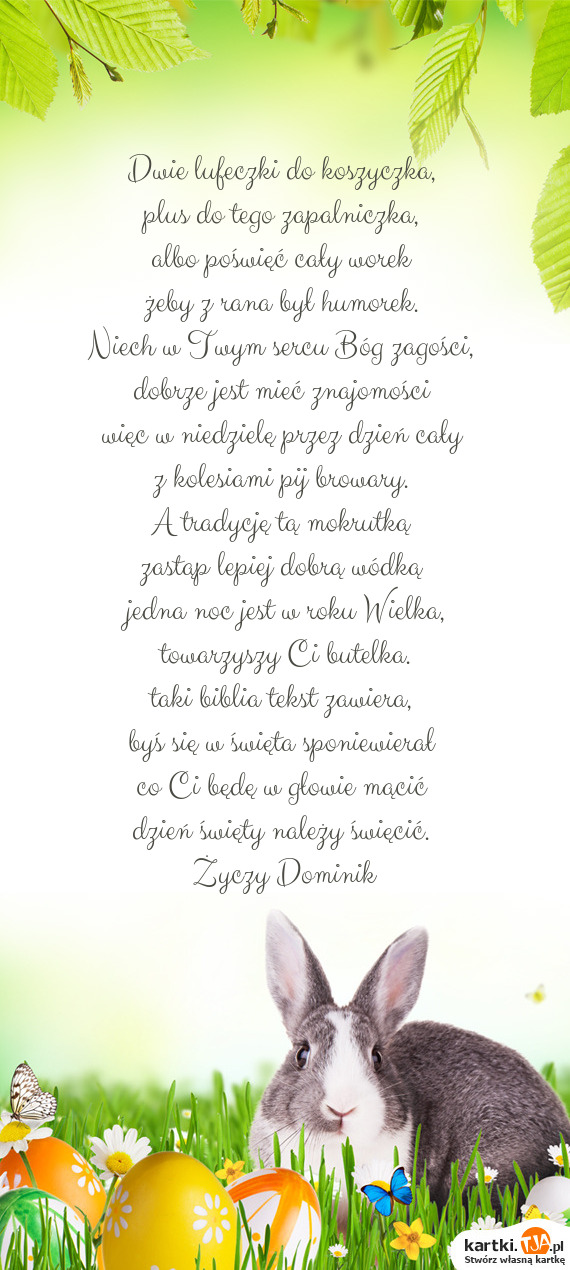 Dwie lufeczki do koszyczka,
plus do tego zapalniczka,
albo poświęć cały worek
żeby z rana był humorek.
Niech w Twym sercu Bóg zagości,
dobrze jest mieć znajomości
więc w niedzielę przez dzień cały
z kolesiami pij browary.
A tradycję tą mokrutką
zastąp lepiej dobrą wódką
jedna noc jest w roku Wielka,
towarzyszy Ci butelka.
taki biblia tekst zawiera,
byś się w święta sponiewierał
co Ci będę w głowie mącić
dzień święty należy święcić.
Życzy Dominik
kartki.TJA.pl
Stwórz własną kartkę